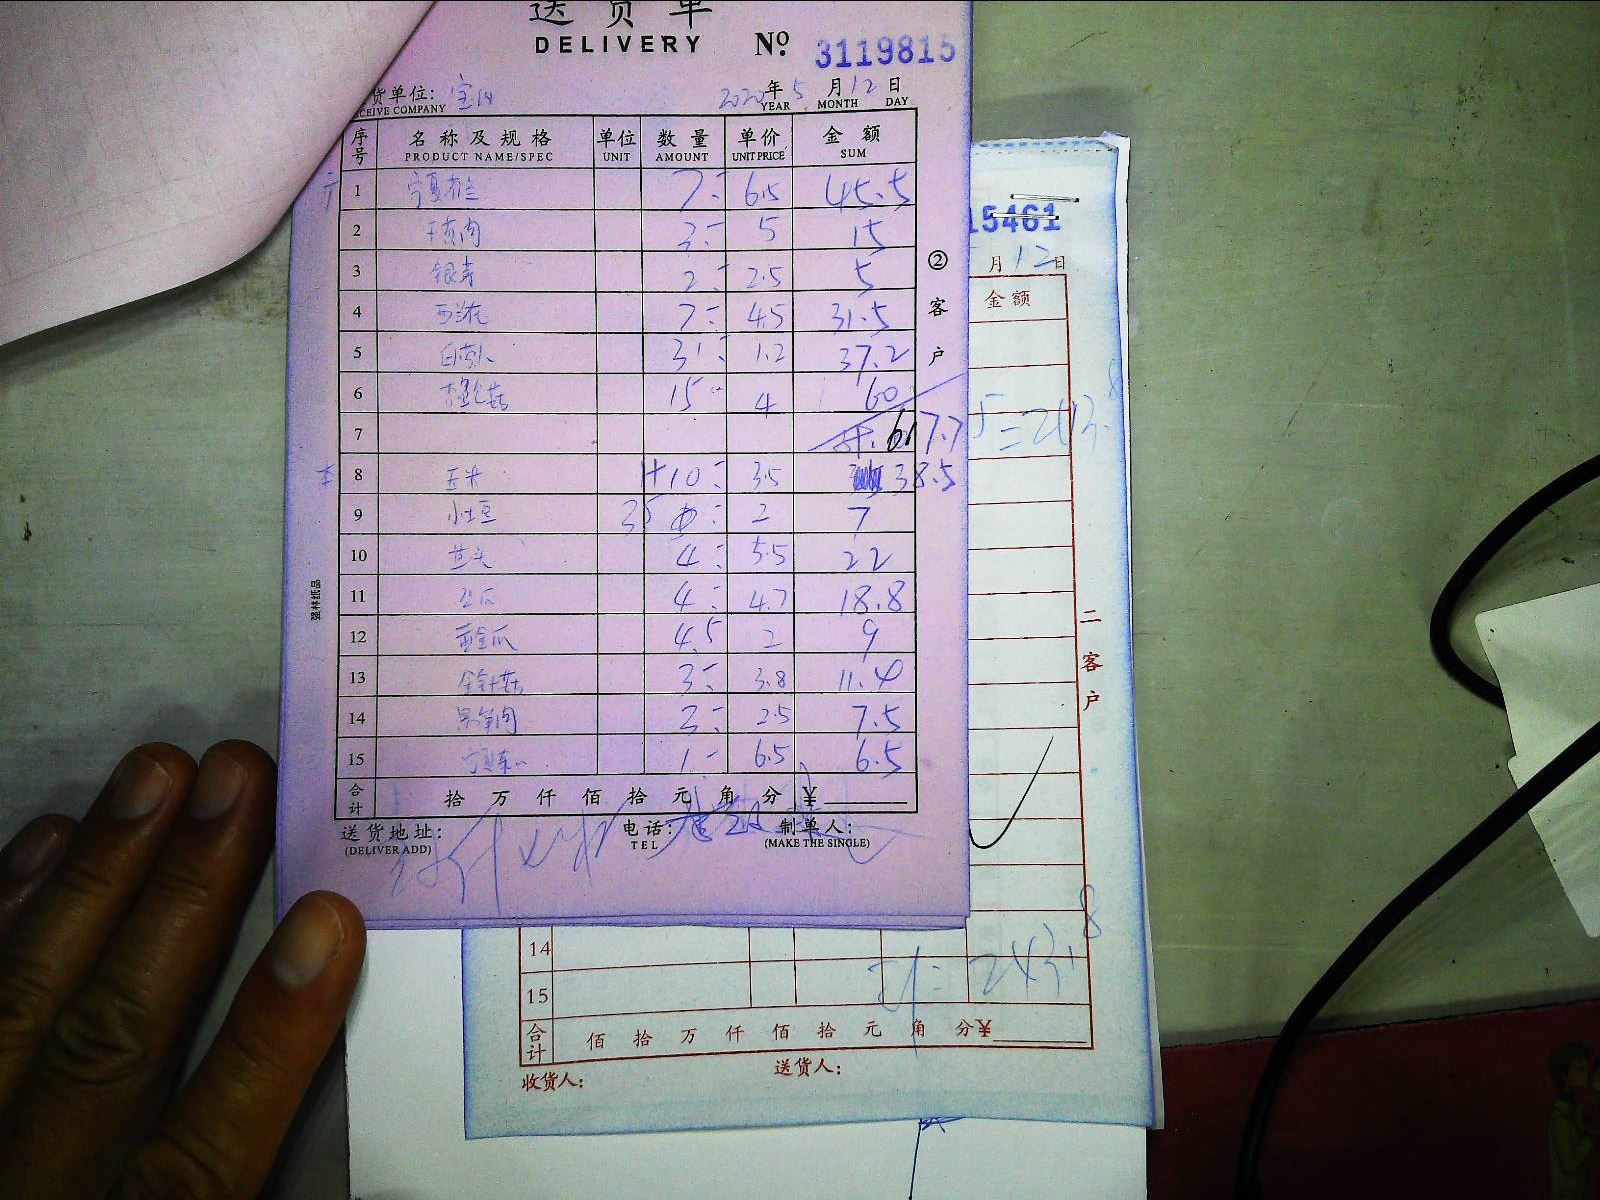 送货单
DELIVERY № 3119815
货单位: 2020年5月12日
CEIVE COMPANY YEAR MONTH DAY
序号 名称及规格 单位 数量 单价 金额
PRODUCT NAME/SPEC UNIT AMOUNT UNIT PRICE SUM
1 7 6.5 45.5
2 3 5 15
3 2 2.5 5
4 西兰花 7 4.5 31.5
5 31 1.2 37.2
6 杏鲍菇 15 4 60
7 617.7
8 玉米 1+10 3.5 38.5
9 小土豆 35 2 7
10 4 5.5 22
11 4 4.7 18.8
12 黄金瓜 4.5 2 9
13 金针菇 3 3.8 11.4
14 3 2.5 7.5
15 1 6.5 6.5
合计 拾万仟佰拾元角分¥
送货地址: 电话: 制单人:
(DELIVER ADD) TEL (MAKE THE SINGLE)
②客户
强林纸品
15461
月12日
金额
=243.8
二客户
14
15 243.8
合计 佰拾万仟佰拾元角分¥
收货人: 送货人: